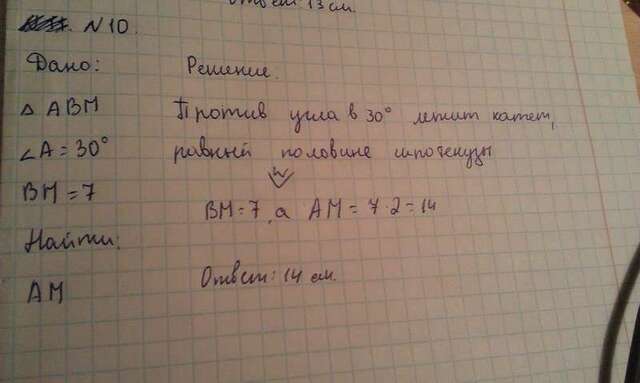 Ответ 13 см.
N 10.
Дано:
Решение.
△ ABM
Против угла в 30° лежит катет,
∠A = 30°
равный половине гипотенузы
BM = 7
BM = 7, а AM = 7·2 = 14
Найти:
AM
Ответ: 14 см.